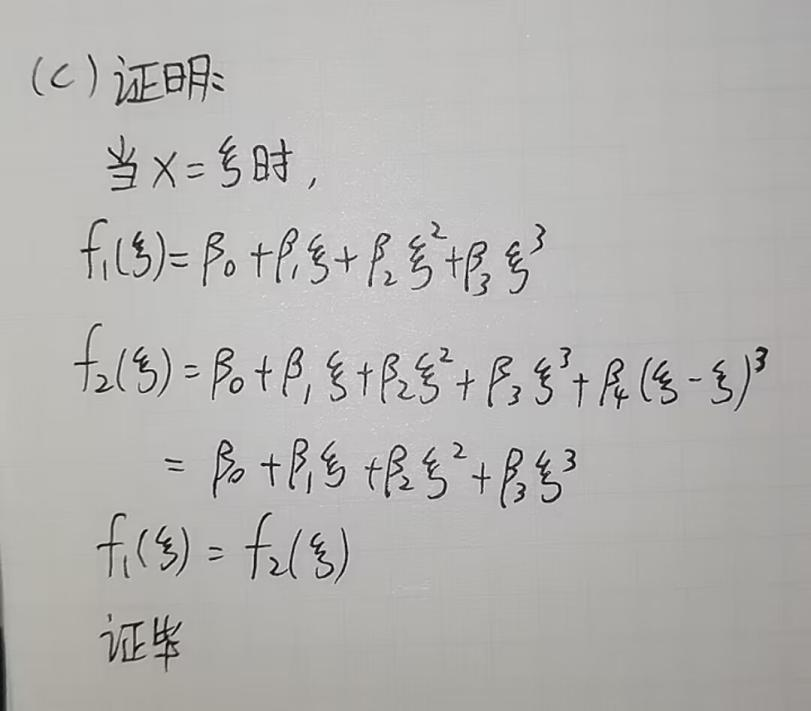 (c) 证明:
当 x = ξ 时,
f₁(ξ) = β₀ + β₁ξ + β₂ξ² + β₃ξ³
f₂(ξ) = β₀ + β₁ξ + β₂ξ² + β₃ξ³ + β₄(ξ - ξ)³
= β₀ + β₁ξ + β₂ξ² + β₃ξ³
f₁(ξ) = f₂(ξ)
证毕